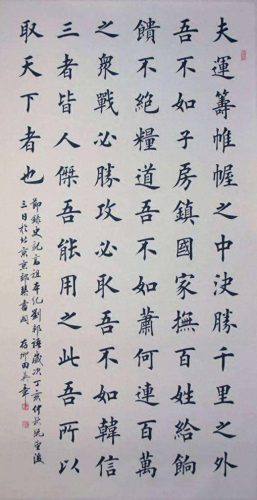 夫運籌帷幄之中決勝千里之外
吾不如子房鎮國家撫百姓給餉
饋不絕糧道吾不如蕭何連百萬
之衆戰必勝攻必取吾不如韓信
三者皆人傑吾能用之此吾所以
取天下者也
節錄史記高祖本紀劉邦語歲次丁亥仲秋既望後
三日於北京京郊 存卿田英章